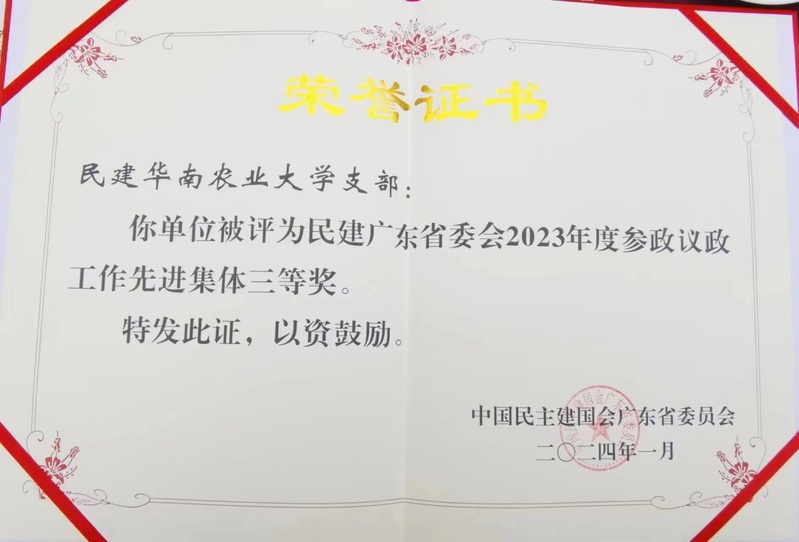 荣誉证书
民建华南农业大学支部：
你单位被评为民建广东省委会2023年度参政议政
工作先进集体三等奖。
特发此证，以资鼓励。
中国民主建国会广东省委员会
二〇二四年一月